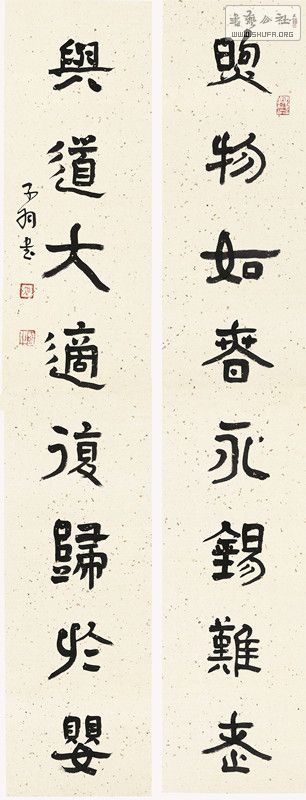 書藝公社
WWW.SHUFA.ORG
煦物如春永錫難老
與道大適復歸於嬰